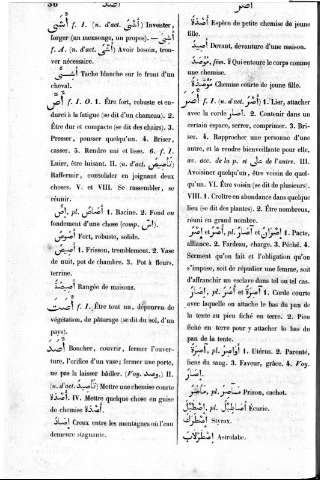 36
أصد
أشى f. I. (n. d'act. أشى) Inventer,
forger (un mensonge, un propos). —
f. A. (n. d'act. أشى) Avoir besoin, trou-
ver nécessaire.
Tache blanche sur le front d'un
cheval.
أص f. I. O. 1. Être fort, robuste et en-
durci à la fatigue (se dit d'un chameau). 2.
Être dur et compacte (se dit des chairs). 3.
Presser, pousser quelqu'un. 4. Briser,
casser. 5. Rendre uni et lisse. 6. f. I.
Luire, être luisant. II. (n. d'act. تأصيص)
Raffermir, consolider en joignant deux
choses. V. et VIII. Se rassembler, se
réunir.
إص, pl. آصاص 1. Racine. 2. Fond ou
fondement d'une chose (comp. أس).
أصوص Fort, robuste, solide.
أصيص 1. Frisson, tremblement. 2. Vase
de nuit, pot de chambre. 3. Pot à fleurs,
terrine.
أصيصة Rangée de maisons.
f. I. Être tout nu, dépourvu de
végétation, de pâturage (se dit du sol, d'un
pays).
أصد Boucher, couvrir, fermer l'ouver-
ture, l'orifice d'un vase; fermer une porte,
ne pas la laisser bâiller. (Voy. وصد). II.
(n. d'act. تأصيد) Mettre une chemise courte
أصدة. IV. Mettre quelque chose en guise
de chemise أصدة.
إصاد Creux entre les montagnes où l'eau
demeure stagnante.
أصر
أصدة Espèce de petite chemise de jeune
fille.
أصيد Devant, devanture d'une maison.
مؤصد, fém. ة Qui entoure le corps comme
une chemise.
مؤصدة Chemise courte de jeune fille.
أصر f. I. (n. d'act. أصر) 1. Lier, attacher
avec la corde إصار. 2. Contenir dans un
certain espace, serrer, comprimer. 3. Bri-
ser. 4. Rapprocher une personne d'une
autre, et la rendre bienveillante pour elle,
av. acc. de la p. et على de l'autre. III.
Avoisiner quelqu'un, être voisin de quel-
qu'un. VI. Être voisin (se dit de plusieurs).
VIII. 1. Croître en abondance dans quelque
lieu (se dit des plantes). 2. Être nombreux,
réuni en grand nombre.
أصر et إصر, pl. آصار et إصران 1. Pacte,
alliance. 2. Fardeau, charge. 3. Péché. 4.
Serment qu'on fait et l'obligation qu'on
s'impose, soit de répudier une femme, soit
d'affranchir un esclave dans tel ou tel cas.
إصار, pl. أصر et آصرة 1. Corde courte
avec laquelle on attache le bas du pan de
la tente au pieu fiché en terre. 2. Pieu
fiché en terre pour y attacher le bas du
pan de la tente.
آصرة, pl. أواصر 1. Utérus. 2. Parenté,
liens du sang. 3. Faveur, grâce. 4. Voy.
إصار.
مأصر, pl. مآصر Prison, cachot.
إصطبل, pl. أصاطبل Écurie.
إصطرك Styrax.
إصطرلاب Astrolabe.